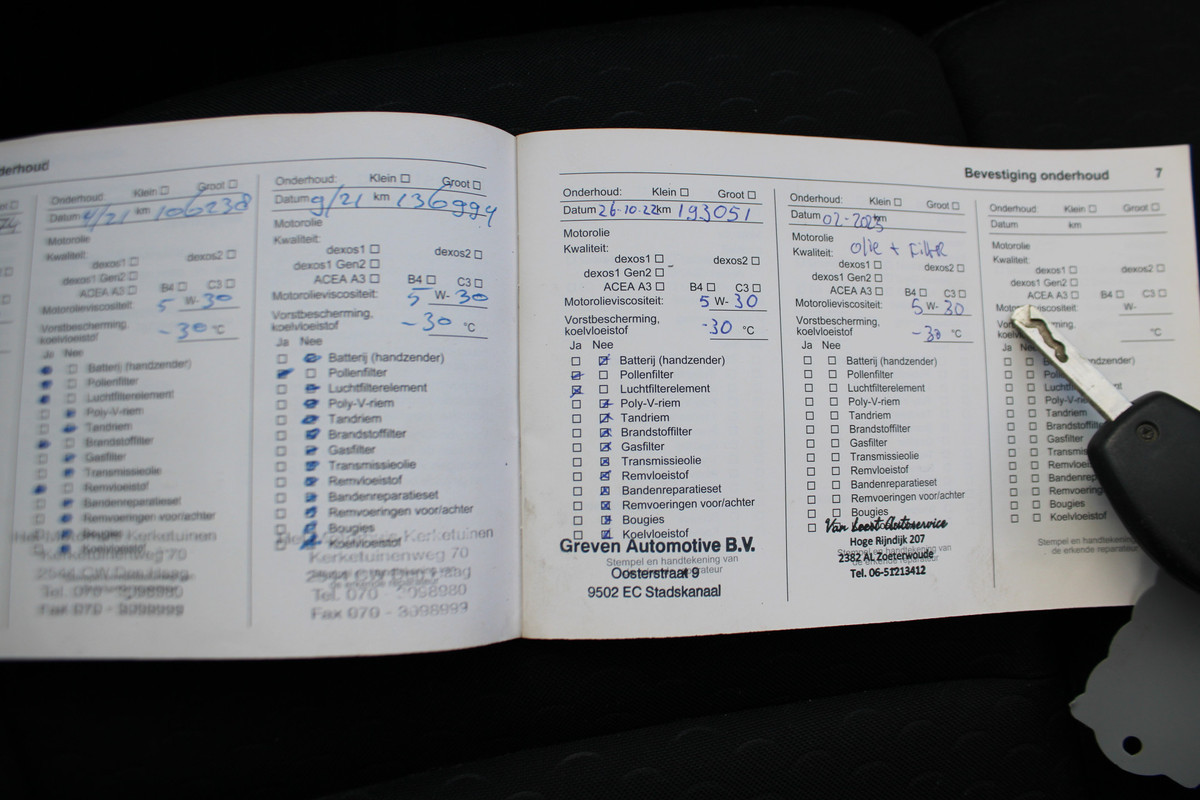 derhoud
Onderhoud: Klein ☐ Groot ☐
Datum 4/21 km 106238
Motorolie
Kwaliteit:
dexos1 ☐ dexos2 ☐
dexos1 Gen2 ☐
ACEA A3 ☐ B4 ☐ C3 ☐
Motorolieviscositeit: 5 W- 30
Vorstbescherming,
koelvloeistof -30 °C
Ja Nee
Batterij (handzender)
Pollenfilter
Luchtfilterelement
Poly-V-riem
Tandriem
Brandstoffilter
Gasfilter
Transmissieolie
Remvloeistof
Bandenreparatieset
Remvoeringen voor/achter
Bougies
Koelvloeistof
Kerketuinen
70
2544 CW Den Haag
Tel. 070 - 3098980
Fax 070 - 3098999
Onderhoud: Klein ☐ Groot ☐
Datum 9/21 km 136994
Motorolie
Kwaliteit:
dexos1 ☐ dexos2 ☐
dexos1 Gen2 ☐
ACEA A3 ☐ B4 ☐ C3 ☐
Motorolieviscositeit: 5 W- 30
Vorstbescherming,
koelvloeistof -30 °C
Ja Nee
Batterij (handzender)
Pollenfilter
Luchtfilterelement
Poly-V-riem
Tandriem
Brandstoffilter
Gasfilter
Transmissieolie
Remvloeistof
Bandenreparatieset
Remvoeringen voor/achter
Bougies
Koelvloeistof
Kerketuinen
Kerketuinenweg 70
2544 CW Den Haag
Tel. 070 - 3098980
Fax 070 - 3098999
Bevestiging onderhoud 7
Onderhoud: Klein ☐ Groot ☐
Datum 26-10-22 km 193051
Motorolie
Kwaliteit:
dexos1 ☐ dexos2 ☐
dexos1 Gen2 ☐
ACEA A3 ☐ B4 ☐ C3 ☐
Motorolieviscositeit: 5 W- 30
Vorstbescherming,
koelvloeistof -30 °C
Ja Nee
Batterij (handzender)
Pollenfilter
Luchtfilterelement
Poly-V-riem
Tandriem
Brandstoffilter
Gasfilter
Transmissieolie
Remvloeistof
Bandenreparatieset
Remvoeringen voor/achter
Bougies
Koelvloeistof
Greven Automotive B.V.
Stempel en handtekening van
Oosterstraat 9
9502 EC Stadskanaal
Onderhoud: Klein ☐ Groot ☐
Datum 02-2025 km
Motorolie
Kwaliteit: olie + Filter
dexos1 ☐ dexos2 ☐
dexos1 Gen2 ☐
ACEA A3 ☐ B4 ☐ C3 ☐
Motorolieviscositeit: 5 W- 30
Vorstbescherming,
koelvloeistof -30 °C
Ja Nee
Batterij (handzender)
Pollenfilter
Luchtfilterelement
Poly-V-riem
Tandriem
Brandstoffilter
Gasfilter
Transmissieolie
Remvloeistof
Bandenreparatieset
Remvoeringen voor/achter
Bougies
Van Leest Autoservice
Hoge Rijndijk 207
Stempel en handtekening van
2382 AL Zoeterwoude
Tel. 06-51213412
Onderhoud: Klein ☐ Groot ☐
Datum km
Motorolie
Kwaliteit:
dexos1 ☐ dexos2 ☐
dexos1 Gen2 ☐
ACEA A3 ☐ B4 ☐ C3 ☐
W-
°C
Ja
Stempel en handtekening van
de erkende reparateur